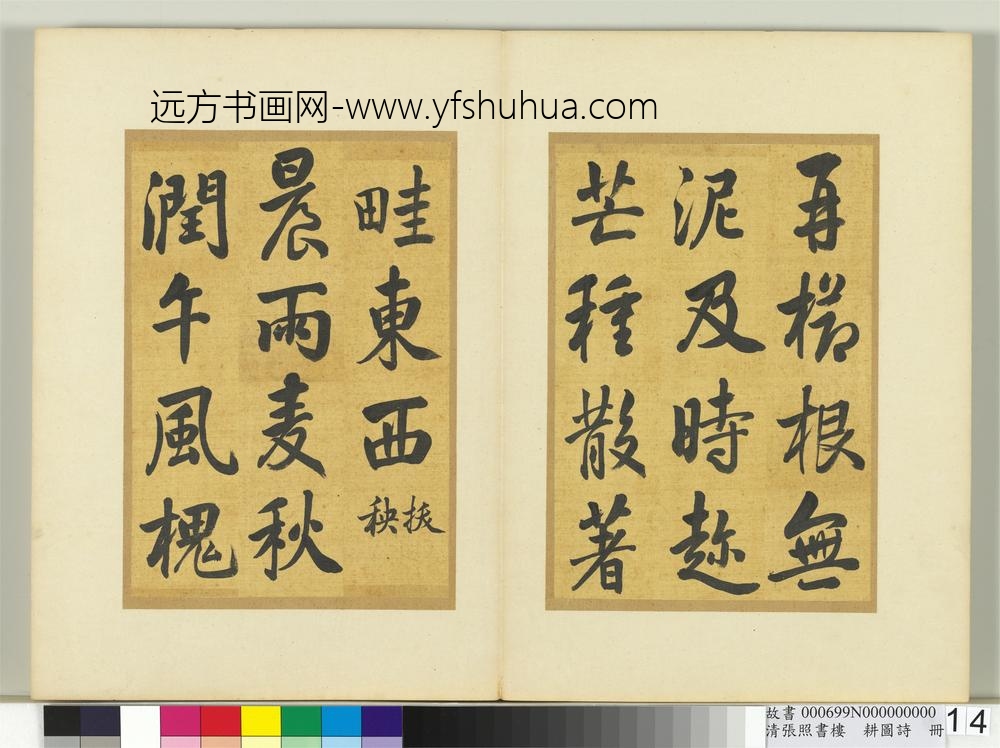 远方书画网-www.yfshuhua.com
再櫛根無
泥及時趂
芒種散著
畦東西 扶秧
晨雨麦秋
潤午風槐
故書 000699N000000000
清張照書樓 耕圖詩 冊
14